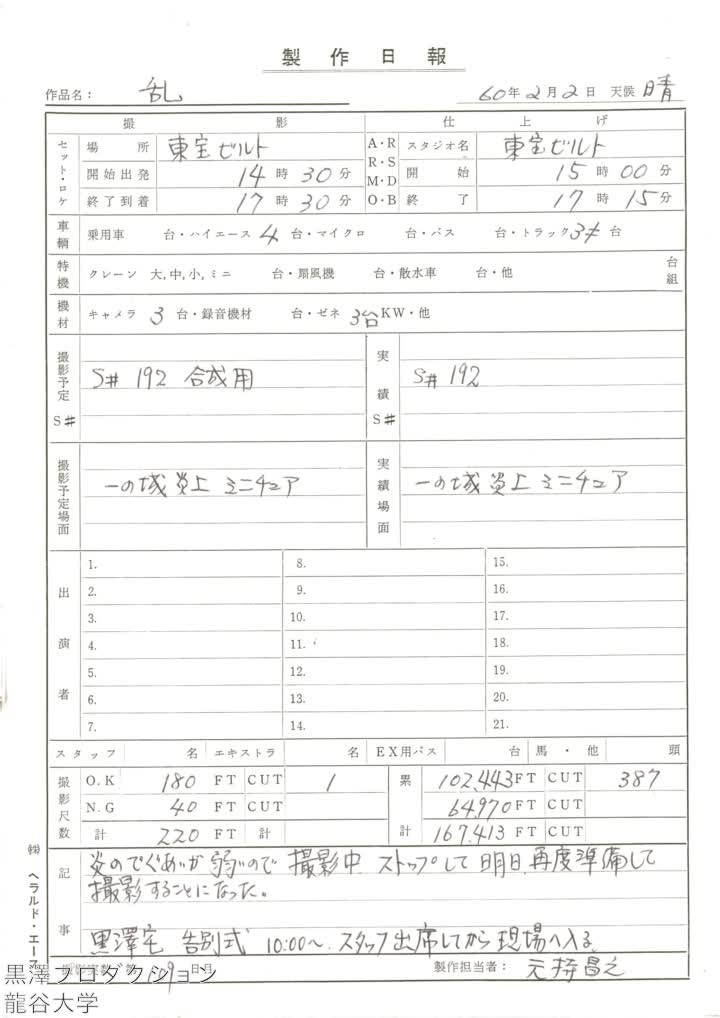 製作日報
作品名： 乱 60年2月2日 天候 晴
撮影 仕上げ
セット・ロケ 場所 東宝ビルト A・R R・S M・D O・B スタジオ名 東宝ビルト
開始出発 14時30分 開始 15時00分
終了到着 17時30分 終了 17時15分
車輌 乗用車 台・ハイエース 4 台・マイクロ 台・バス 台・トラック 3 台
特機 クレーン 大,中,小,ミニ 台・扇風機 台・散水車 台・他 台組
機材 キャメラ 3 台・録音機材 台・ゼネ 3台 KW・他
撮影予定 S# S# 192 合成用 実績 S# S# 192
撮影予定場面 一の城炎上 ミニチュア 実績場面 一の城炎上 ミニチュア
出演者
1. 8. 15.
2. 9. 16.
3. 10. 17.
4. 11. 18.
5. 12. 19.
6. 13. 20.
7. 14. 21.
スタッフ 名 エキストラ 名 EX用バス 台 馬・他 頭
撮影尺数 O.K 180 FT CUT 1 累計 102,443 FT CUT 387
N.G 40 FT CUT 64,970 FT CUT
計 220 FT 計 167,413 FT CUT
記事 炎のでぐあいが弱いので 撮影中 ストップして 明日、再度準備して
撮影することになった。
黒澤宅 告別式 10:00〜 スタッフ出席してから現場へ入る
撮影実数 第109日目 製作担当者： 元持昌之
㈱ ヘラルド・エース
黒澤プロダクション
龍谷大学